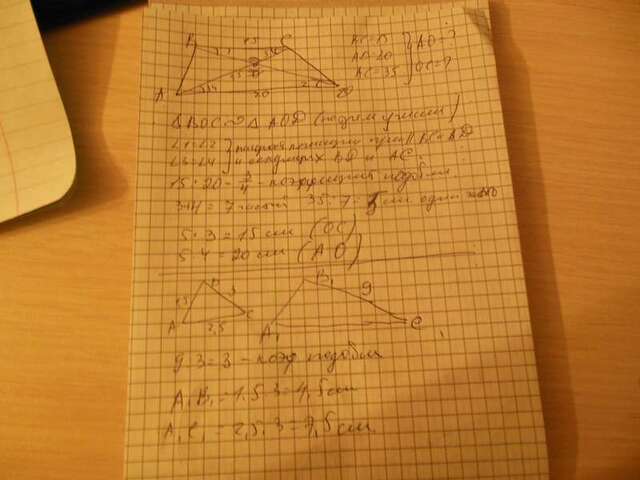 B 15 C
A 20 D
BC=15
AD=20 AO-?
AC=35 OC=?
△BOC ∾ △AOD (по двум углам)
∠1=∠2
∠3=∠4 и секущих BD и AC.
15:20=3/4 - коэффициент подобия
3+4=7 частей 35:7=5см одна часть
5·3=15 см (OC)
5·4=20 см (AO)
B B₁
1,5 3 C 9
A 2,5 A₁ C
9:3=3 - коэф подобия
A₁B₁=1,5·3=4,5см
A₁C₁=2,5·3=7,5см